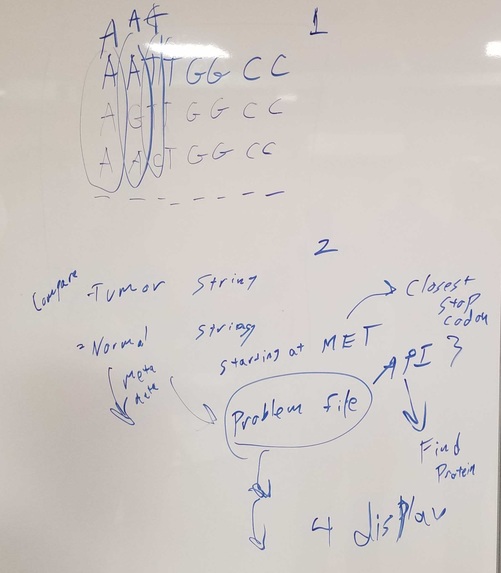 1
A A T
A A T T G G C C
A G T T G G C C
A A C T G G C C
2
Compare -Tumor String
= Normal String
Meta
Meta
Starting at MET
Closest
Stop
Codon
Problem File
API 3
Find
Protein
4 display